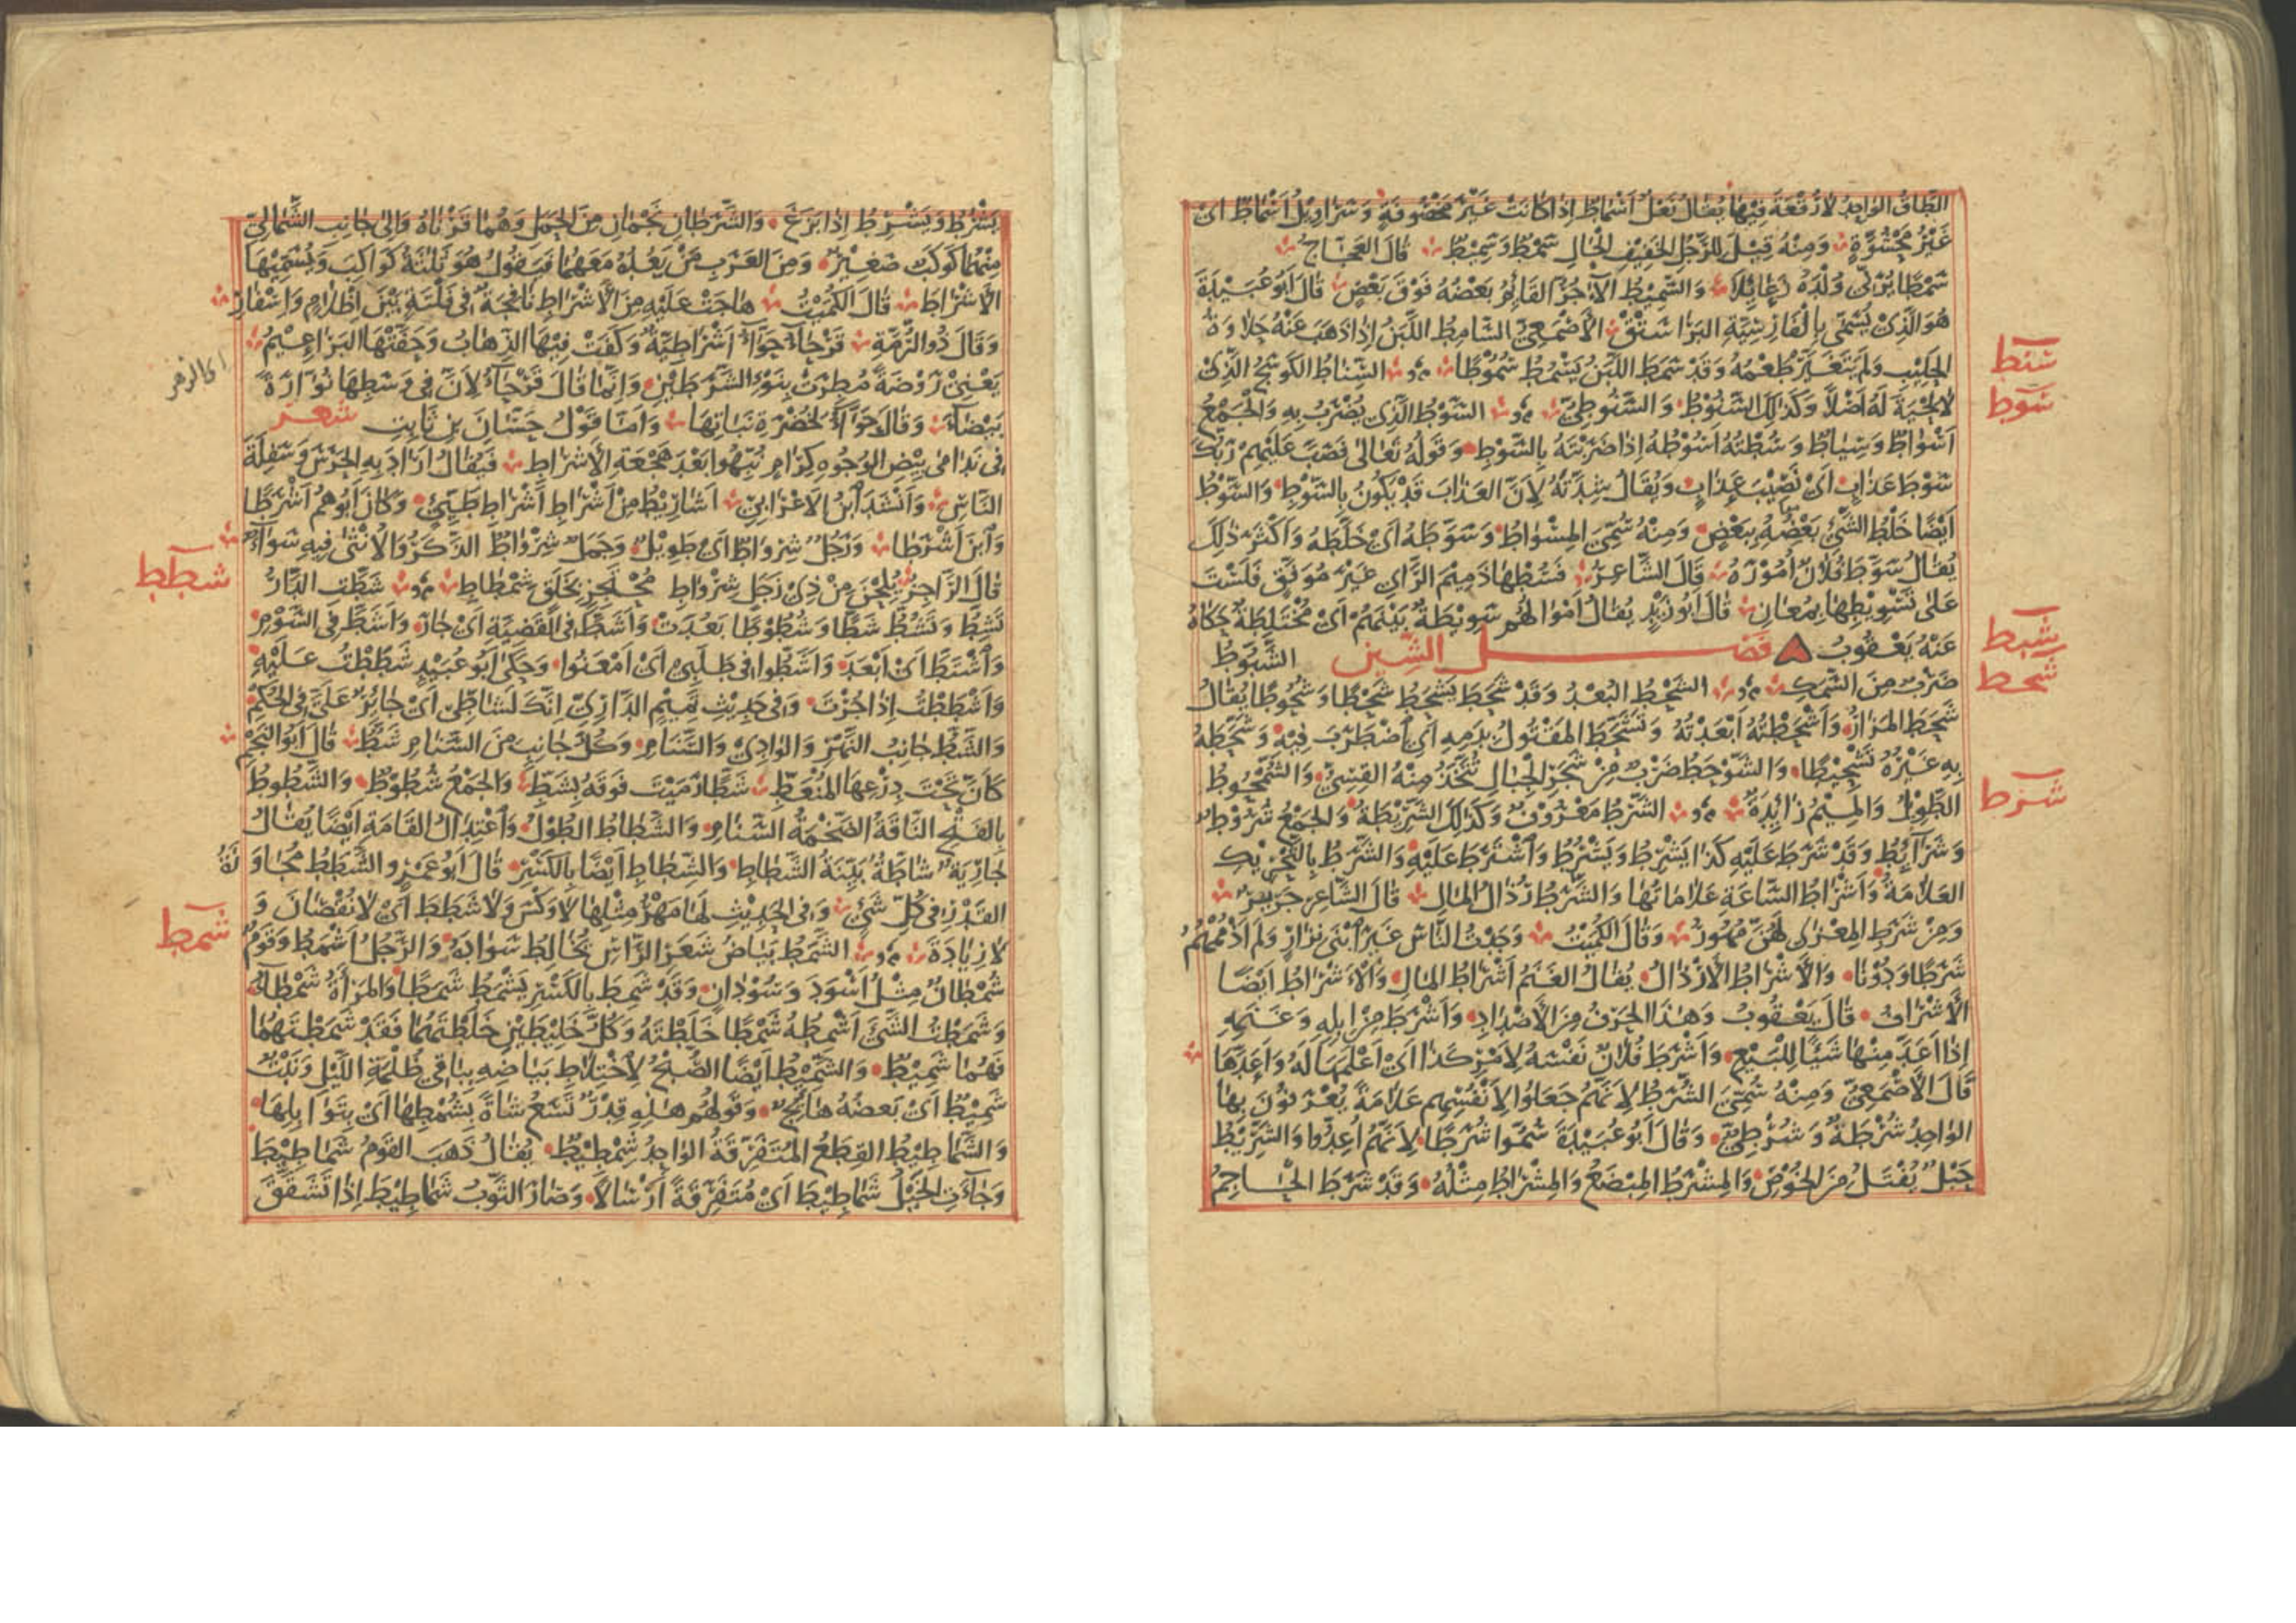 الطاق الواحد لا رقعة فيها يقال نعل اسماط اذا كانت غير مخصوفة وسراويل اسماط اى
غير محشوة ومنه قيل للرجل الخفيف الحال سمط وسميط قال العجاج
سمطا يربى ولدة زعابلا والسميط الآجر القائم بعضه فوق بعض قال ابو عبيدة
هو الذى يسمى بالفارسية البراستق الاصمعى السامط اللبن اذا ذهب عنه حلاوة
الحليب ولم يتغير طعمه وقد سمط اللبن يسمط سموطا السناط الكوسج الذى
سنط
لا لحية له اصلا وكذلك السنوط والسنوطى السوط الذى يضرب به والجمع
سوط
اسواط وسياط وسطته اسوطه اذا ضربته بالسوط وقوله تعالى فصب عليهم ربك
سوط عذاب اى نصيب عذاب ويقال شدته لان العذاب قد يكون بالسوط والسوط
ايضا خلط الشئ بعضه ببعض ومنه سمى المسواط وسوطه اى خلطه واكثر ذلك
يقال سوط فلان اموره قال الشاعر فسطها ذميم الراى غير موفق فلست
على تسويطها بمعان قال ابو زيد يقال اموالهم سويطة بينهم اى مختلطة حكاه
عنه يعقوب فصل الشين الشبوط
شبط
ضرب من السمك الشحط البعد وقد شحط يشحط شحطا وشحوطا يقال
شحط
شحط المزار واشحطته ابعدته وتشحط المقتول بدمه اى اضطرب فيه وشحطه
به غيره تشحيطا والشوحط ضرب من شجر الجبال تتخذ منه القسى والشمحوط
الطويل والميم زايدة الشرط معروف وكذلك الشريطة والجمع شروط
شرط
وشرآئط وقد شرط عليه كذا يشرط ويشرط واشترط عليه والشرط بالتحريك
العلامة واشراط الساعة علاماتها والشرط رذال المال قال الشاعر جرير
ومن شرط المعزى لهن مهور وقال الكميت وجدت الناس غير ابنى نزار ولم اذممهم
شرطا ودونا والاشراط الارذال يقال الغنم اشراط المال والاشراط ايضا
الاشراف قال يعقوب وهذا الحرف من الاضداد واشرط من ابله وغنمه
اذا اعد منها شيئا للبيع واشرط فلان نفسه لامر كذا اى اعلمها له واعدها
قال الاصمعى ومنه سمى الشرط لانهم جعلوا لانفسهم علامة يعرفون بها
الواحد شرطة وشرطى وقال ابو عبيدة سموا شرطا لانهم اعدوا والشريط
حبل يفتل من الخوص والمشرط المبضع والمشراط مثله وقد شرط الحاجم
يشرط ويشرط اذا بزغ والشرطان نجمان من الحمل وهما قرناه والى جانب الشمالى
منهما كوكب صغير ومن العرب من يعده معهما فيقول هو ثلثة كواكب ويسميها
الاشراط قال الكميت هاجت عليه من الاشراط نافجة فى فلتة بين اظلام واسفار
وقال ذو الرمة قرحآء حوآء اشراطية وكفت فيها الذهاب وحفتها البراعيم
يعنى روضة مطرت بنوء الشرطين وانما قال قرحآء لان فى وسطها نوارة
بيضآء وقال حوآء لخضرة نباتها واما قول حسان بن ثابت شعر
فى ندامى بيض الوجوه كرام نبهوا بعد هجعة الاشراط فيقال اراد به الحرس وسفلة
الناس وانشد ابن الاعرابى اشاريط من اشراط اشراط طيئ وكان ابوهم اشرطا
وابن اشرطا ورجل شرواط اى طويل وجمل شرواط الذكر والانثى فيه سوآء
قال الراجز يلحن من ذى زجل شرواط محتجز بخلق شمطاط شطت الدار
شطط
تشط وتشط شطا وشطوطا بعدت واشط فى القضية اى جار واشط فى السوم
واشتط اى ابعد واشطوا فى طلبى اى امعنوا وحكى ابو عبيد شططت عليه
واشططت اذا جرت وفى حديث تميم الدارى انك لشاطى اى جائر على فى الحكم
والشط جانب النهر والوادى والسنام وكل جانب من السنام شط قال ابو النجم
كان تحت درعها المنعط شطا رميت فوقه بشط والجمع شطوط والشطوط
بالفتح الناقة الضخمة السنام والشطاط الطول واعتدال القامة ايضا يقال
جارية شاطة بينة الشطاط والشطاط ايضا بالكسر قال ابو عمرو الشطط مجاوزة
القدر فى كل شئ وفى الحديث لها مهر مثلها لا وكس ولا شطط اى لا نقصان و
لا زيادة الشمط بياض شعر الراس يخالط سواده والرجل اشمط وقوم
شمط
شمطان مثل اسود وسودان وقد شمط بالكسر يشمط شمطا والمرأة شمطآء
وشمطت الشئ اشمطه شمطا خلطته وكل خليطين خلطتهما فقد شمطتهما
فهما شميط والشميط ايضا الصبح لاختلاط بياضه بباقى ظلمة الليل ونبت
شميط اى بعضه هائج وقولهم هذه قدر تسع شاة بشمطها اى بتوابلها
والشماطيط القطع المتفرقة الواحد شمطيط يقال ذهب القوم شماطيط
وجآءت الخيل شماطيط اى متفرقة ارسالا وصار الثوب شماطيط اذا تشقق